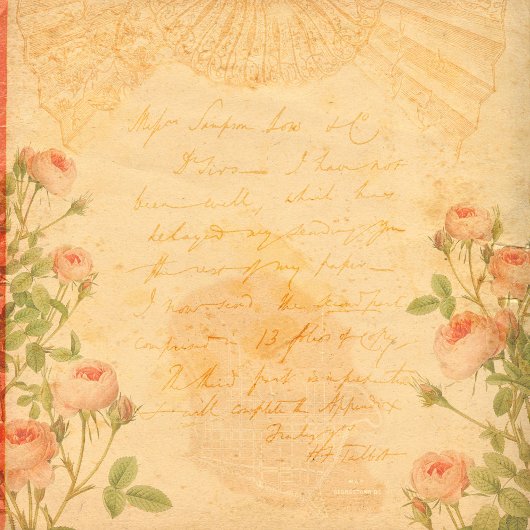 Messrs Sampson Low & Co
Dr Sirs — I have not
been well, which has
delayed my sending you
the rest of my paper —
I now send the second part
comprised in 13 folios of copy
The third part in preparation
will complete the Appendix
Truly yrs
H F Talbot
MAP
GEORGETOWN DC